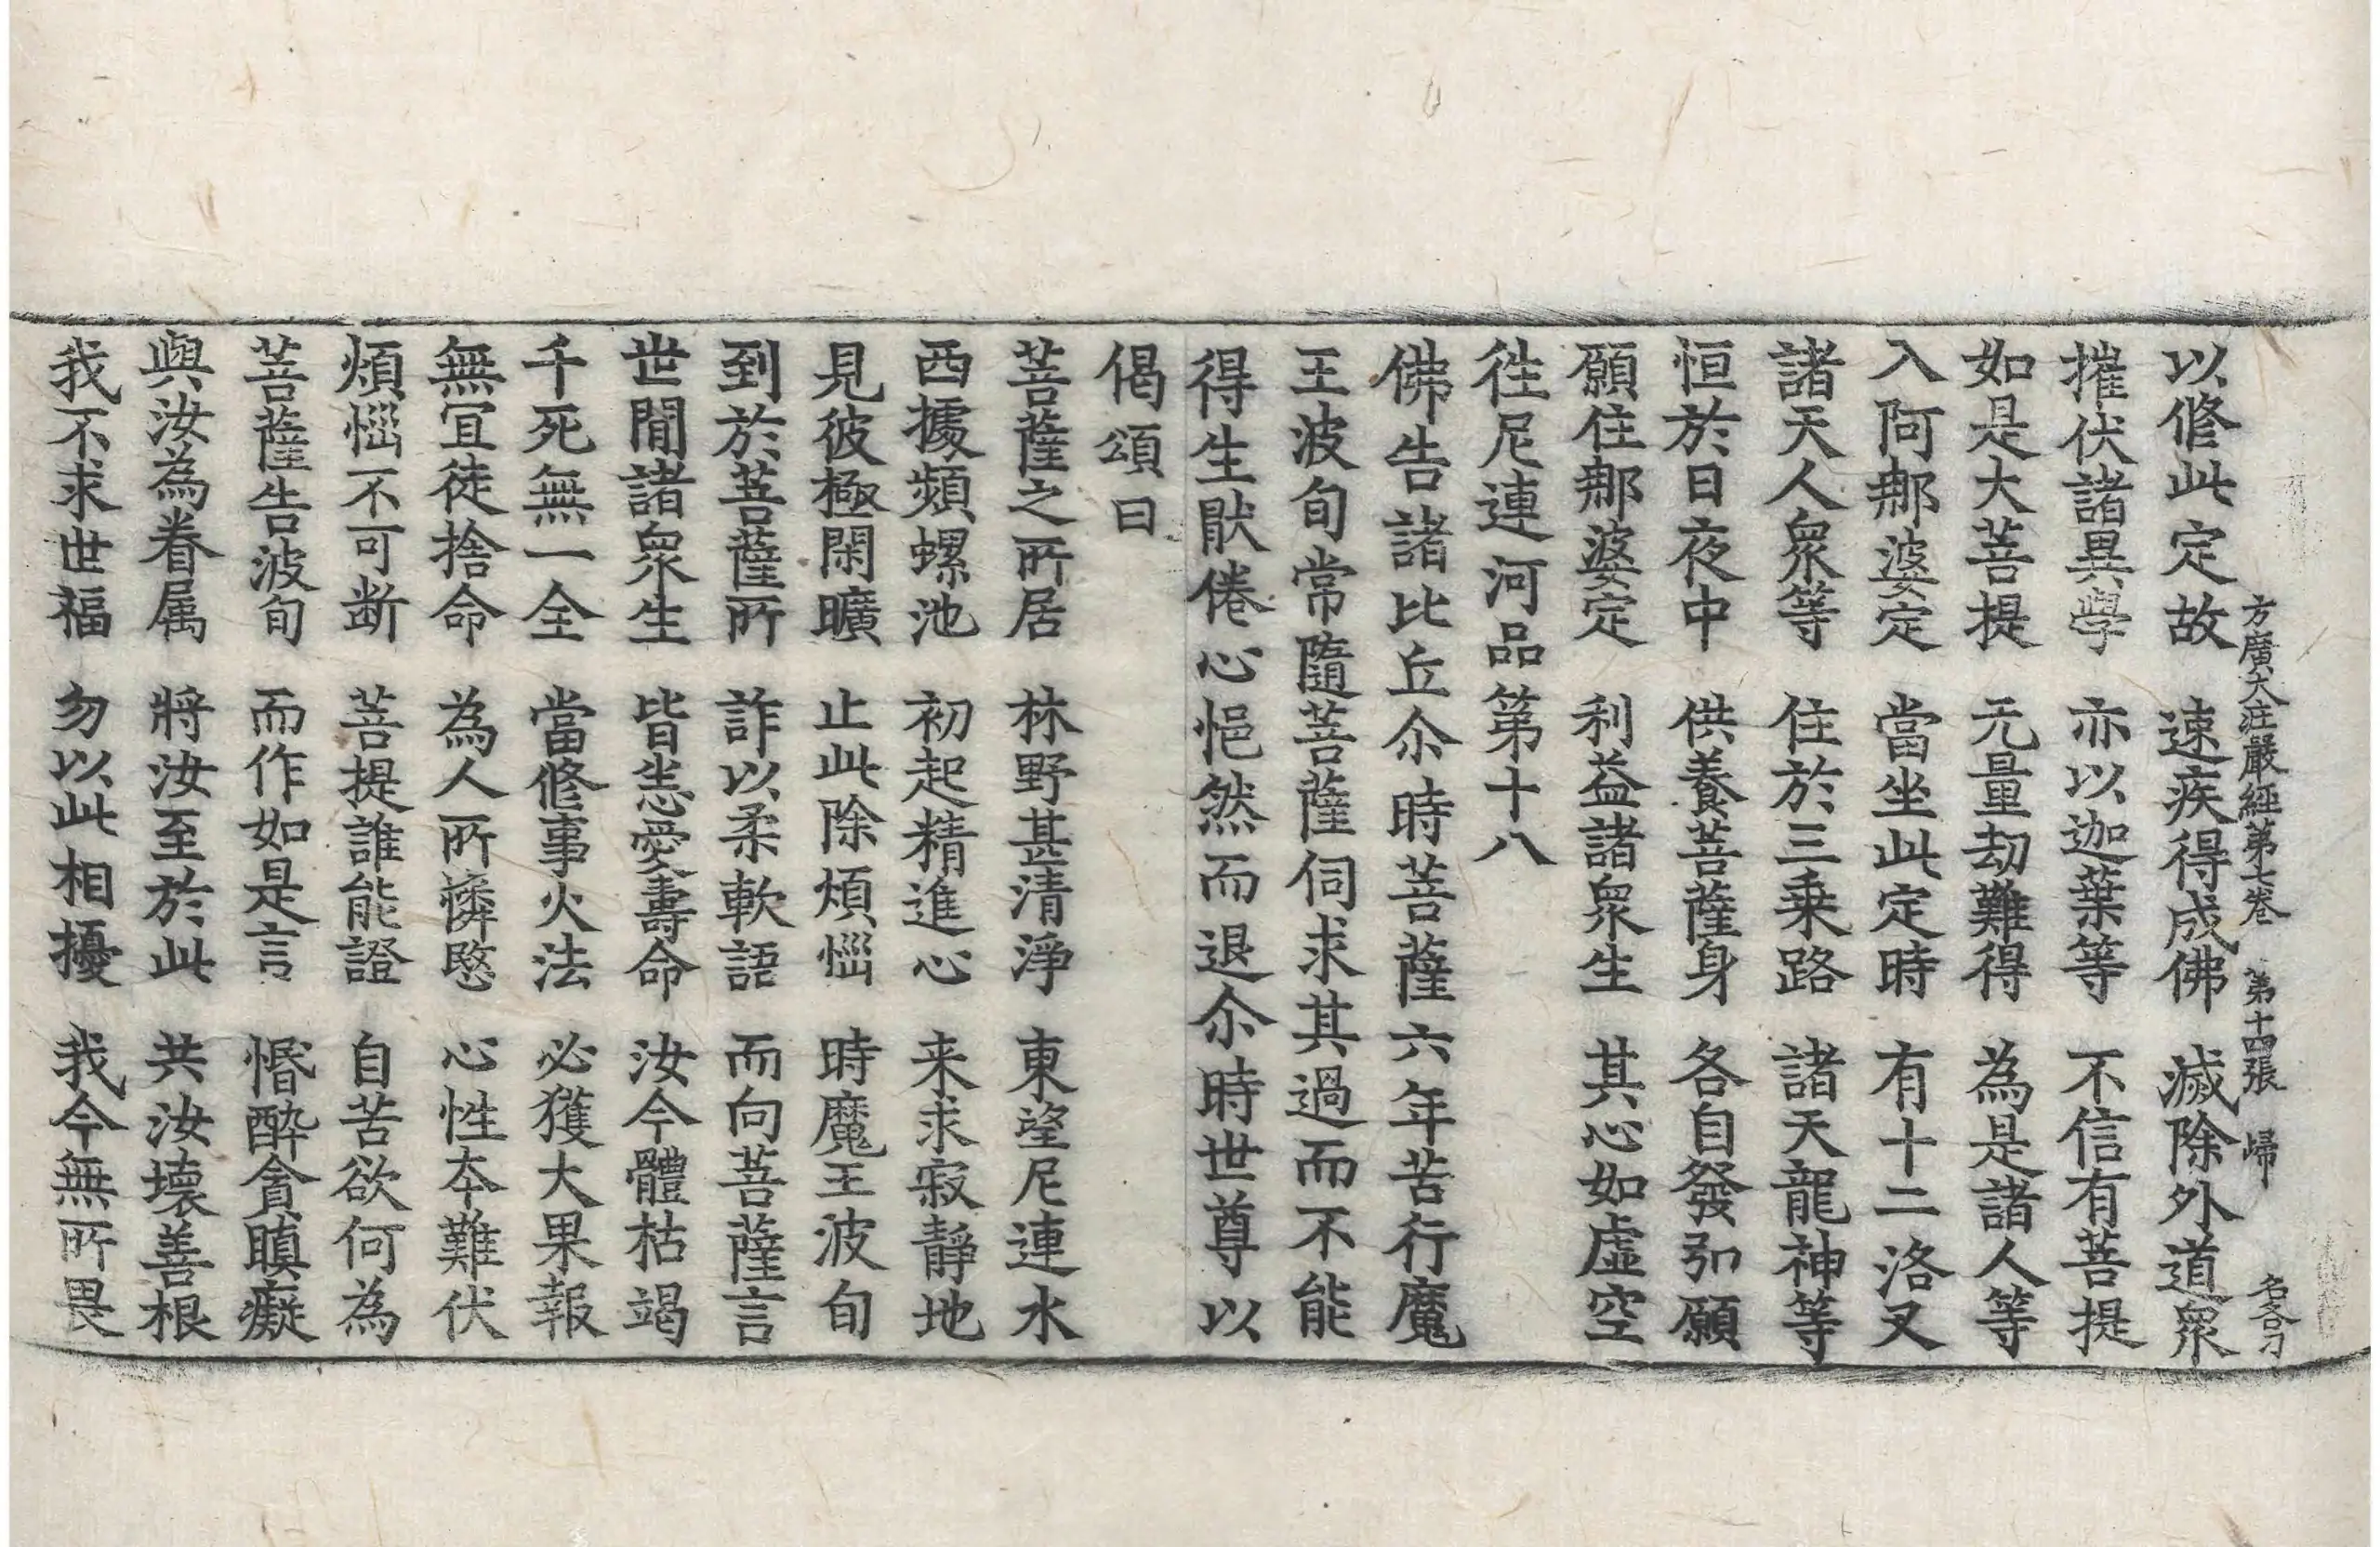 方廣大莊嚴經第七卷　第十四張　歸
以修此定故　速疾得成佛　滅除外道衆
摧伏諸異學　亦以迦葉等　不信有菩提
如是大菩提　无量劫難得　為是諸人等
入阿那婆定　當坐此定時　有十二洛叉
諸天人衆等　住於三乗路　諸天龍神等
恒於日夜中　供養菩薩身　各自發弘願
願住那婆定　利益諸衆生　其心如虛空
往尼連河品第十八
佛告諸比丘尒時菩薩六年苦行魔
王波旬常隨菩薩伺求其過而不能
得生猒倦心悒然而退尒時世尊以
偈頌曰
菩薩之所居　林野甚清淨　東望尼連水
西據頻螺池　初起精進心　来求寂靜地
見彼極閑曠　止此除煩惱　時魔王波旬
到於菩薩所　詐以柔軟語　而向菩薩言
世閒諸衆生　皆悉愛壽命　汝今體枯竭
千死無一全　當修事火法　必獲大果報
無宜徒捨命　為人所憐愍　心性夲難伏
煩惱不可断　菩提誰能證　自苦欲何為
菩薩告波旬　而作如是言　惛醉貪瞋癡
與汝為眷属　將汝至於此　共汝壞善根
我不求世福　勿以此相擾　我今無所畏